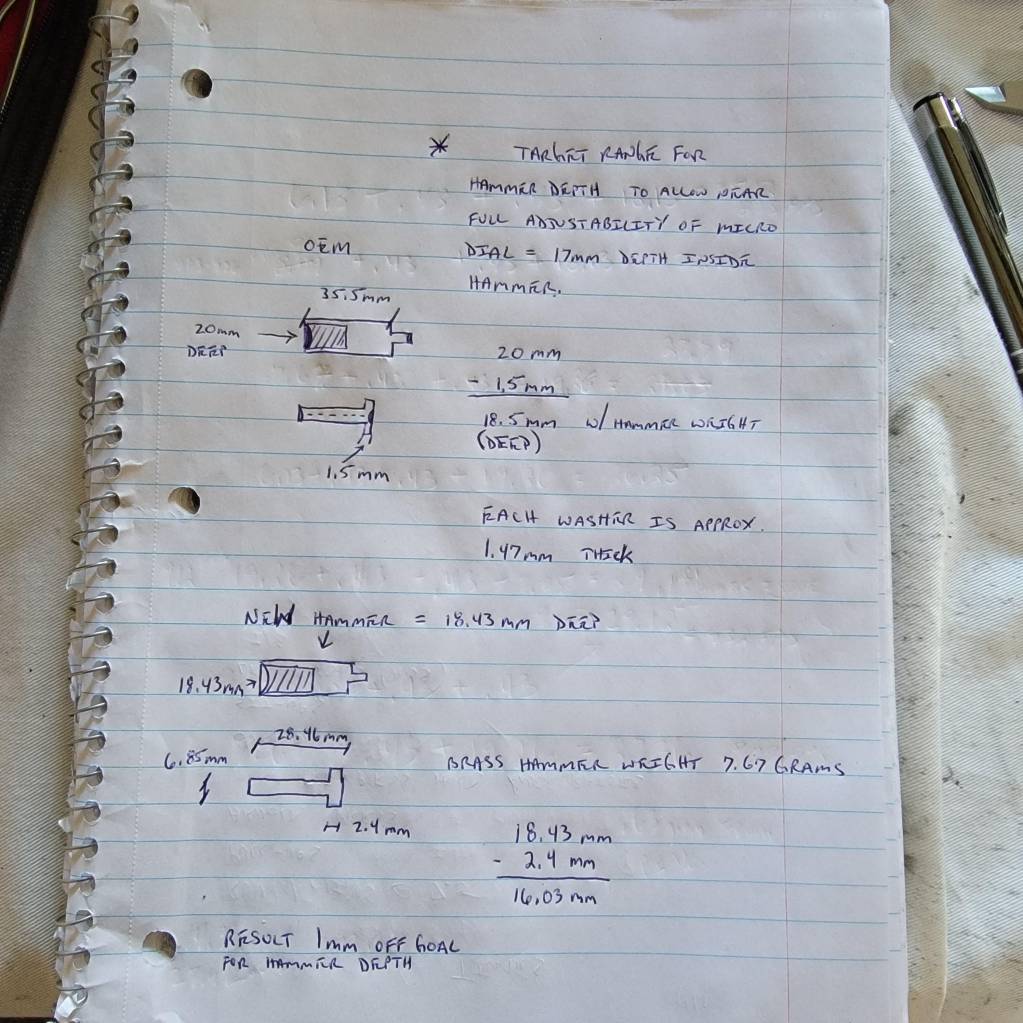 * TARGET RANGE FOR
HAMMER DEPTH TO ALLOW NEAR
FULL ADJUSTABILITY OF MICRO
DIAL = 17mm DEPTH INSIDE
HAMMER.
OEM
35.5mm
20mm
DEEP
20 mm
- 1.5 mm
18.5mm W/ HAMMER WEIGHT
(DEEP)
1.5mm
EACH WASHER IS APPROX.
1.47mm THICK
NEW HAMMER = 18.43 mm DEEP
18.43mm
28.46mm
6.85mm
BRASS HAMMER WEIGHT 7.67 GRAMS
2.4 mm
18.43 mm
- 2.4 mm
16.03 mm
RESULT 1mm OFF GOAL
FOR HAMMER DEPTH